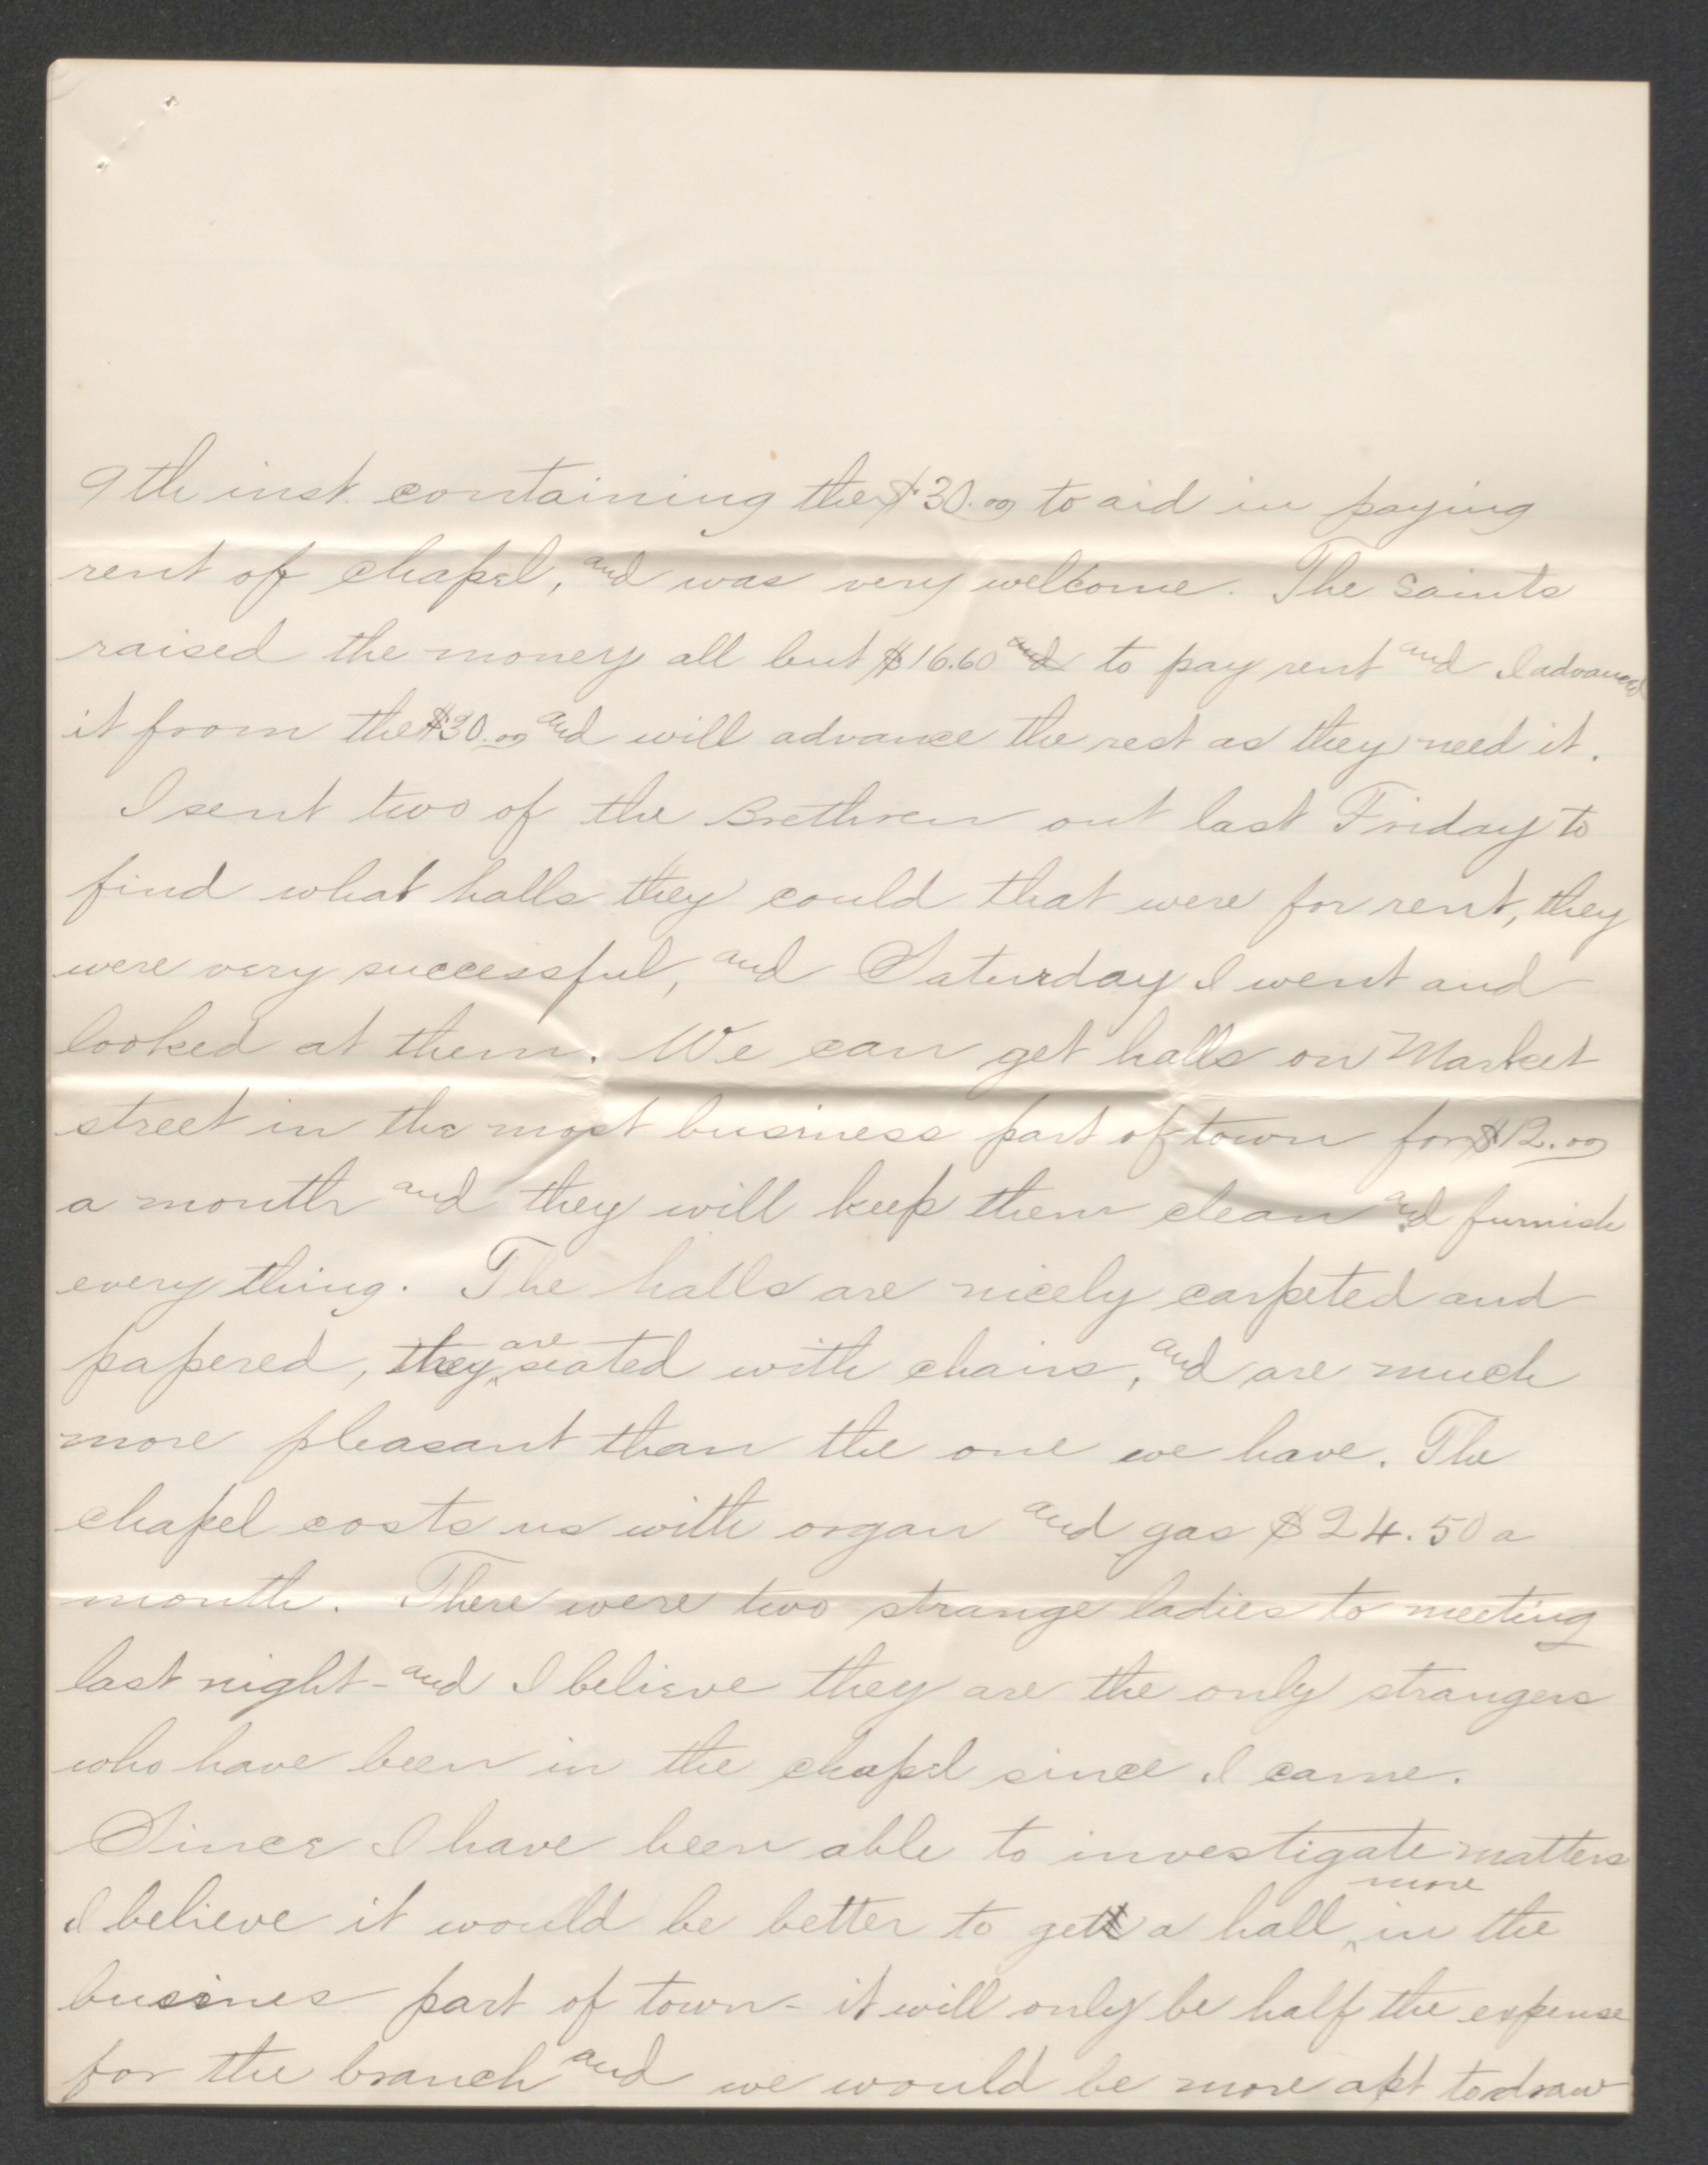 9th inst. containing the $30.00 to aid in paying
rent of chapel, and was very welcome. The Saints
raised the money all but $16.60 and to pay rent and I advanced
it from the $30.00 and will advance the rest as they need it.
I sent two of the Brethren out last Friday to
find what halls they could that were for rent, they
were very successful, and Saturday I went and
looked at them. We can get halls on Market
street in the most business part of town for $12.00
a month and they will keep them clean and furnish
every thing. The halls are nicely carpeted and
papered, they are seated with chairs, and are much
more pleasant than the one we have. The
chapel costs us with organ and gas $24.50 a
month. There were two strange ladies to meeting
last night - and I believe they are the only strangers
who have been in the chapel since I came.
Since I have been able to investigate matters
I believe it would be better to get a hall more in the
busines part of town - it will only be half the expense
for the branch and we would be more apt to draw